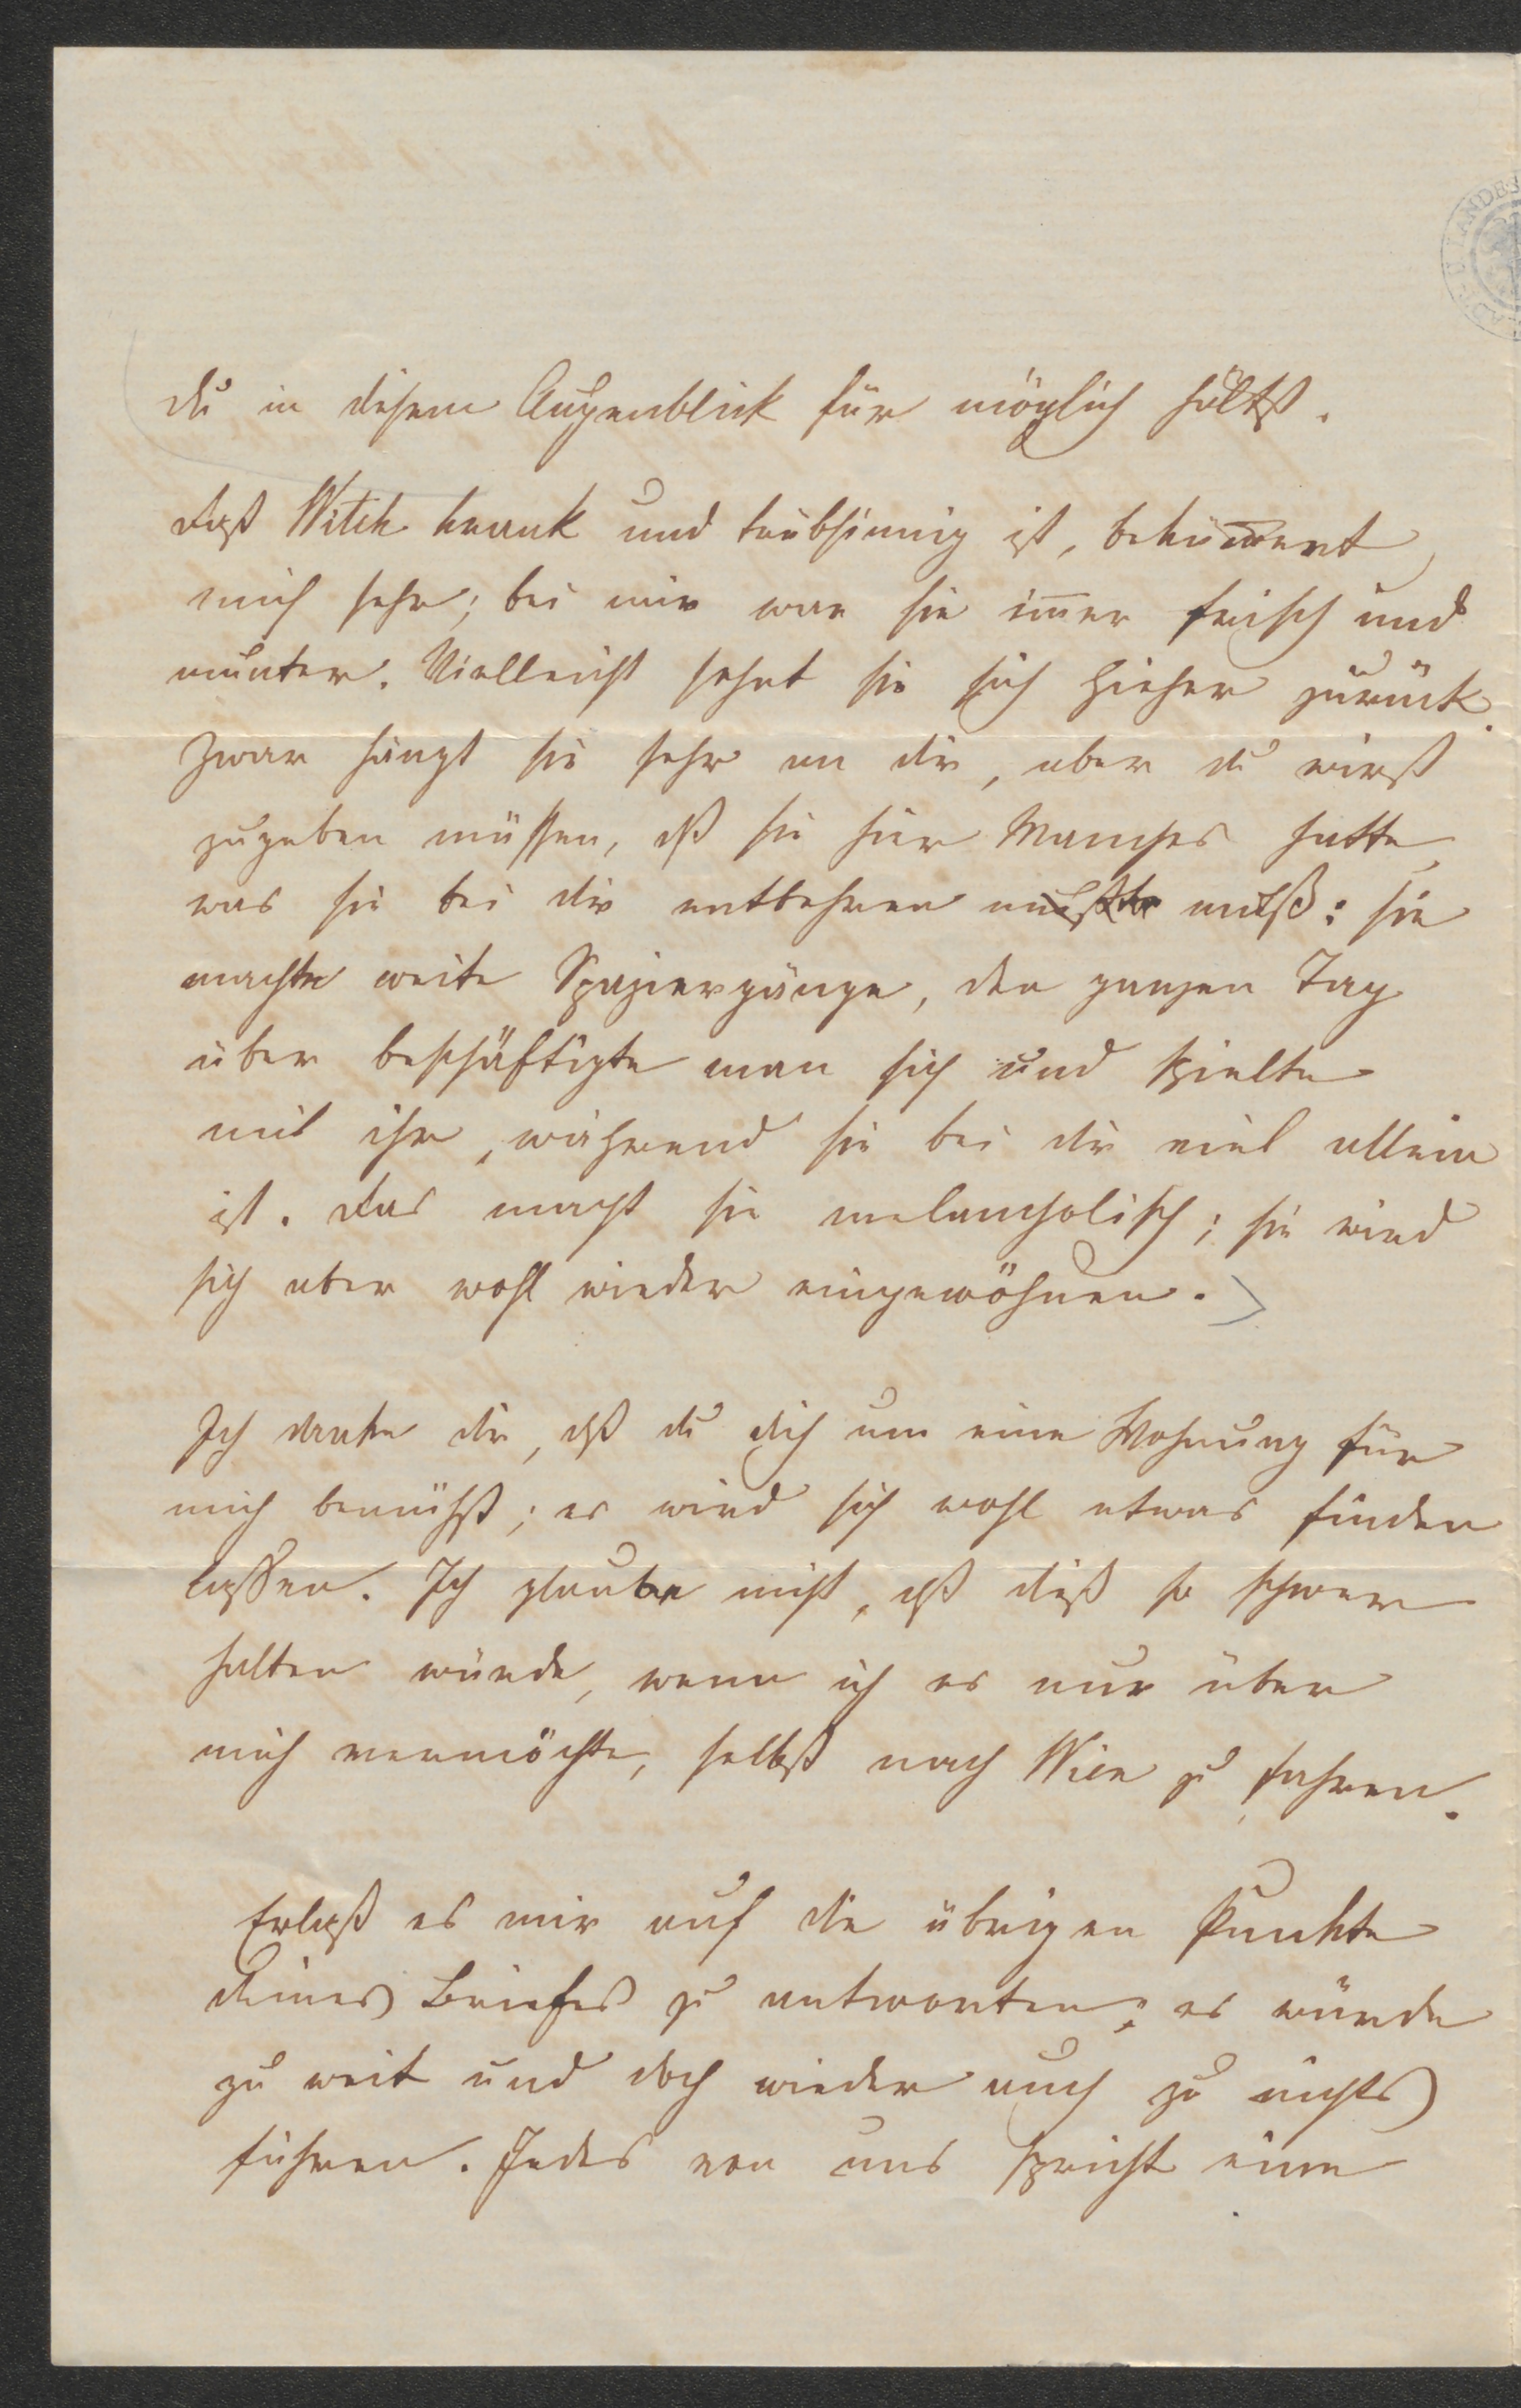 du in diesem Augenblick für möglich hältst.
daß Witch krank und trübsinnig ist, beküm̄ert
mich sehr; bei mir war sie im̄er frisch und
munter. Vielleicht sehnt sie sich hieher zurück.
Zwar hängt sie sehr an dir, aber du wirst
zugeben müssen, dß sie hier Manches hatte,
was sie bei dir entbehren mußte muß: sie
machte weite Spaziergänge, den ganzen Tag
über beschäftigte man sich und spielte
mit ihr, während sie bei dir viel allein
ist. das macht sie melancholisch; sie wird
sich aber wohl wieder eingewöhnen.
Ich danke dir, dß du dich um eine Wohnung für
mich bemühst; es wird sich wohl etwas finden
lassen. Ich glaube nicht, dß dieß so schwer
halten würde, wenn ich es nur über
mich vermöchte, selbst nach Wien zu fahren.
Erlaß es mir auf die übrigen Punkte
deines Briefes zu antworten; es würde
zu weit und doch wieder auch zu nichts
führen. Jedes von uns spricht eine